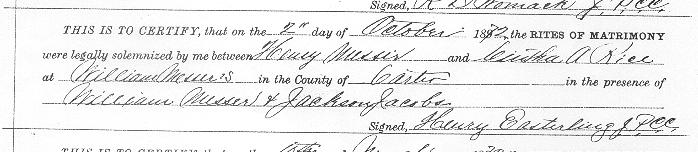 Signed, R D Womack J.P.C.C.
THIS IS TO CERTIFY, that on the 2" day of October 1892, the RITES OF MATRIMONY
were legally solemnized by me between Henry Messer and A Rice
at William Messers in the County of Carter in the presence of
William Messer & Jackson Jacobs
Signed, Henry Easterling J.P.C.C.
THIS IS TO CERTIFY that on the